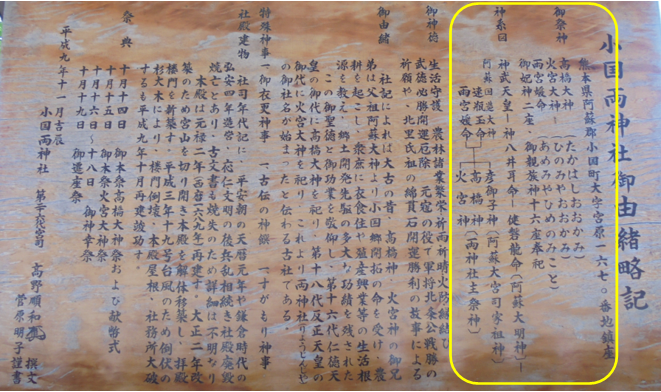 小国両神社御由緒略記
熊本県阿蘇郡小国町大字宮原一六七〇番地鎮座
御祭神
高橋大神（たかはしおおかみ）
火宮大神（ひのみやおおかみ）
雨宮媛命（あめみやひめのみこと）
御妃神二座、御親族神十六座奉祀
神系図
神武天皇ー神八井耳命ー健磐龍命（阿蘇大明神）ー
彦御子神（阿蘇大宮司家祖神）
速瓶玉命
高橋神
火宮神
（両神社主祭神）
雨宮媛命
御神徳
生活守護、農林諸業繁栄祈雨祈晴火防縁結び
武徳必勝開運厄除
元寇の役で軍将北条公戦勝の
祈願や、北里氏祖の綿貫石開運勝利の故事による
御由緒
社記によれば大古の昔、高橋神、火宮神の御兄
弟は父祖阿蘇大神より小国郷開拓の命を受け、農
耕を起こし、衆庶に衣食住や殖産興業等の生活根
源を教え、郷土開発先駆の多大な功績を残された
この御聖徳と御功業を敬仰し、第十六代仁徳天
皇の御代に高橋大神を祀り、第十八代反正天皇の
御代に火宮大神を祀り、これより両神社
の御社名が始まったと伝わる古社である。
特殊神事
一御衣更神事
一古伝の神饌
一すがもり神事
社殿建物
社司年代記に、平安朝の天暦元年や鎌倉時代の
弘安四年造営、応仁文明の後兵乱相続き社殿廃毀
焼亡とあり、古文書も焼失のため詳細は不明なり
本殿は元禄二年（西暦一六八九年）再建す。大正二年改
築のため宮山を切り開き本殿を解体移築し、拝殿
楼門を新築す。平成三年十九号台風のため倒伏の
杉大木により、楼門倒壊、本殿屋根、社務所大破
するも平成九年十月再建竣功す。
祭典
十月十四日
御本祭高橋大神祭および献幣式
十月十五日
御本祭火宮大神祭
十月十六日〜十八日
御神幸祭
十月十九日
御造産祭
平成九年十一月吉辰
小国両神社
高野順和
撰文
菅原明子謹書